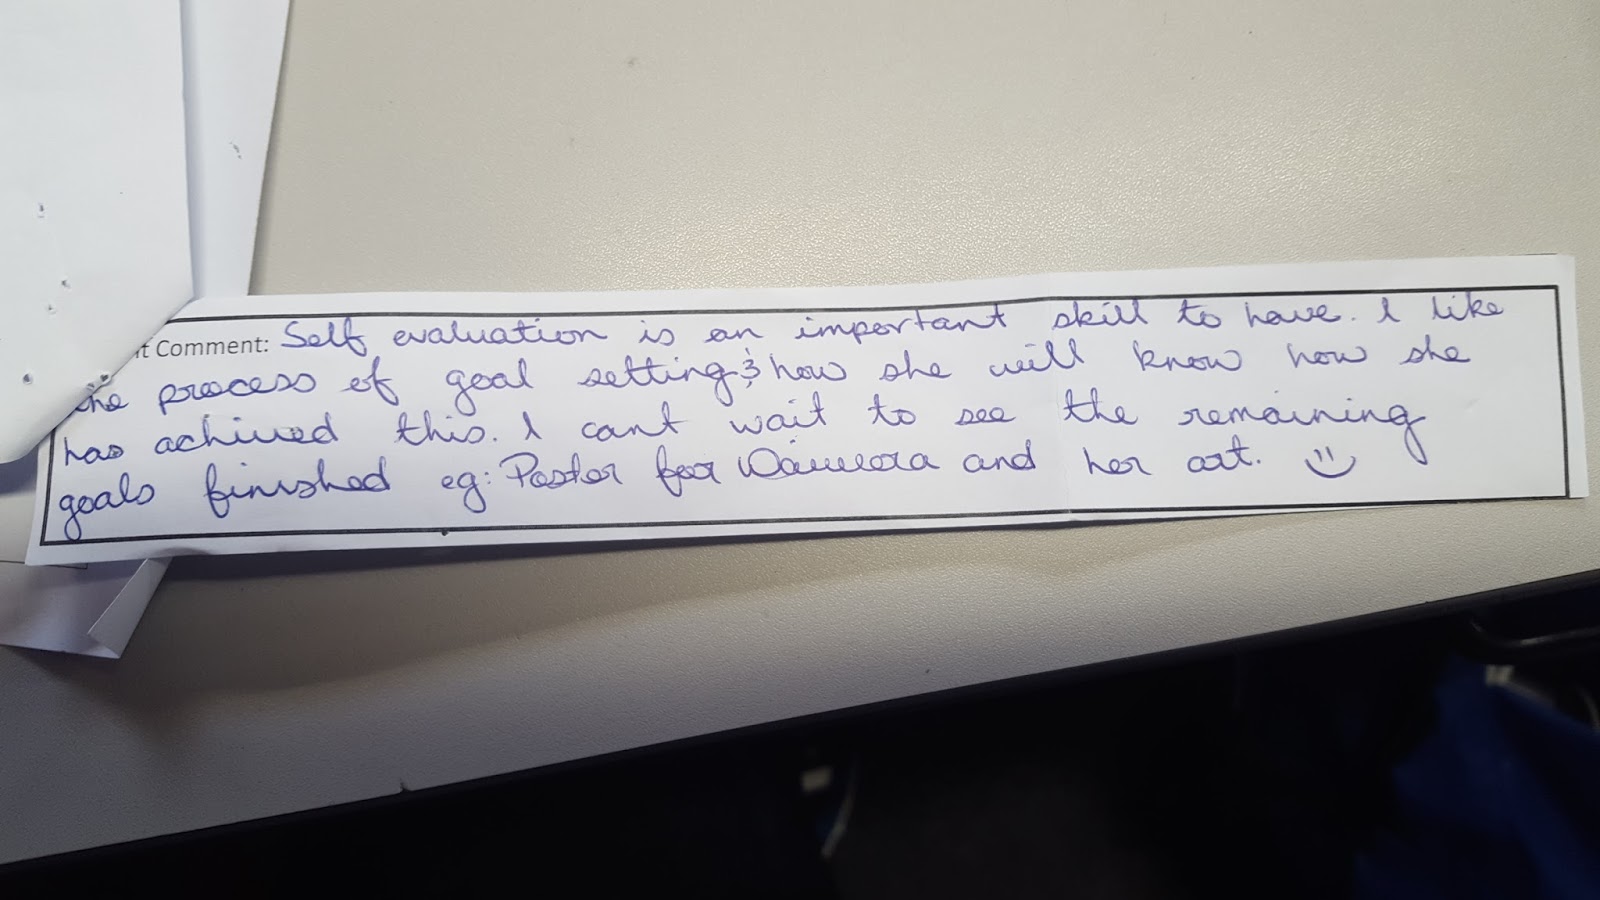 t Comment: Self evaluation is an important skill to have. I like
the process of goal setting & how she will know how she
has achived this. I cant wait to see the remaining
goals finished eg: Poster for and her art. :)